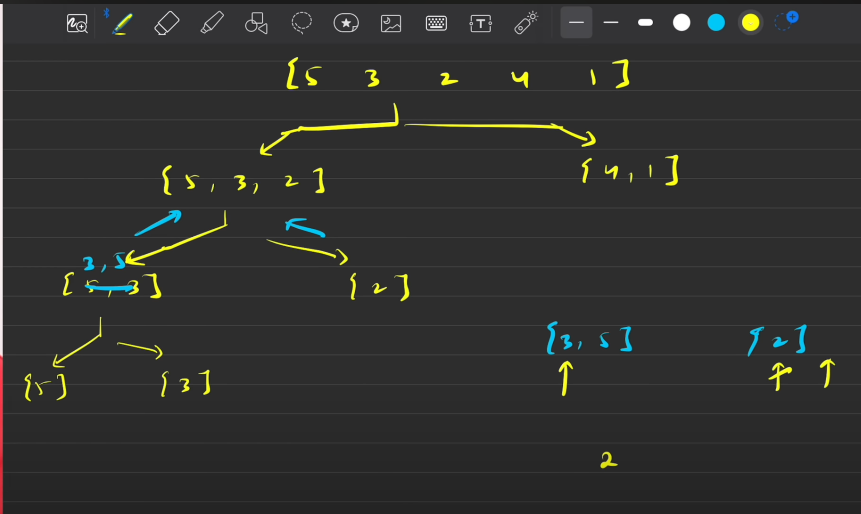 [5 3 2 4 1]
[5, 3, 2] [4, 1]
3, 5
[5, 3] [2]
[3, 5] [2]
[5] [3]
2